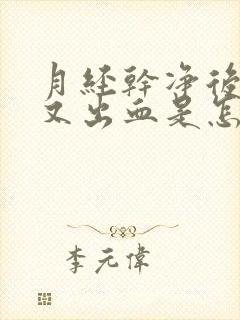 月经幹净後
又出血是怎
李元偉